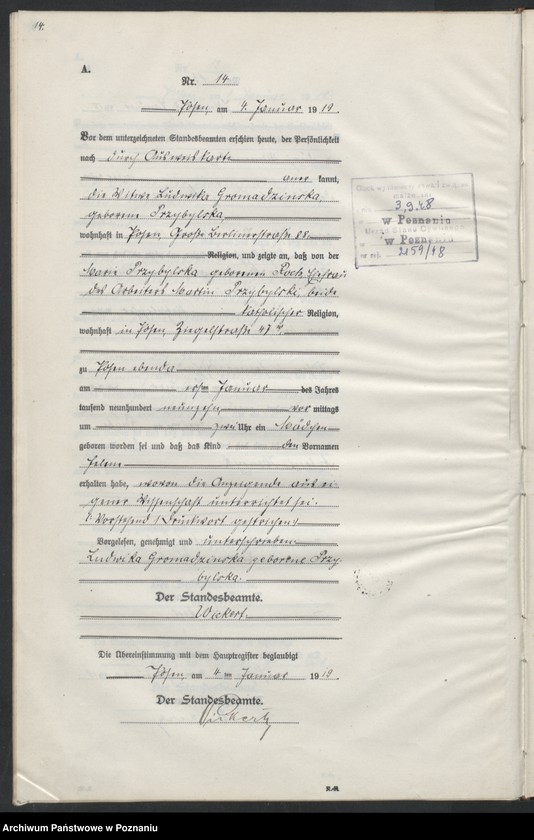 14.
A.
Nr. 14
Posen, am 4. Januar 1919.
Vor dem unterzeichneten Standesbeamten erschien heute, der Persönlichkeit
nach durch Ausweiskarte
aner kannt,
die Witwe Ludwika Gromadzinska
geborene Przybylska
wohnhaft in Posen, Große Berlinerstraße 88.
Religion, und zeigte an, daß von der
Maria Przybylska geborenen Ehefrau
des Arbeiters Martin Przybylski, beide
katholischer Religion,
wohnhaft in Posen, Ziegelstraße 47
zu Posen ebenda
am ersten Januar des Jahres
tausend neunhundert neunzehn vor mittags
um zwei Uhr ein Mädchen
geboren worden sei und daß das Kind den Vornamen
Helene
erhalten habe, wovon die Anzeigende aus ei-
gener Wissenschaft unterrichtet sei.
Vorstehend 1 Druckwort gestrichen.
Vorgelesen, genehmigt und unterschrieben
Ludwika Gromadzinska geborene Przy-
bylska.
Der Standesbeamte.
Wickert.
Die Übereinstimmung mit dem Hauptregister beglaubigt
Posen, am 4ten Januar 1919.
Der Standesbeamte.
Wickert
3.9.48
w Poznaniu
w Poznaniu
2159/48
K.-R.
Archiwum Państwowe w Poznaniu